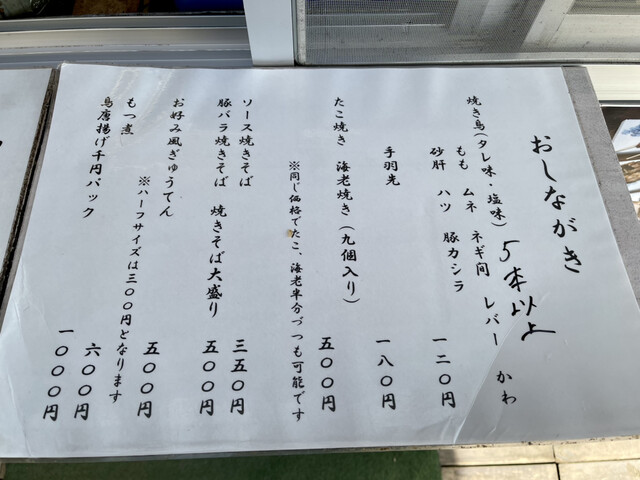 おしながき
焼き鳥(タレ味・塩味) 5本以上
もも ムネ ネギ間 レバー かわ
砂肝 ハツ 豚カシラ 一二〇円
手羽先 一八〇円
たこ焼き 海老焼き(九個入り) 五〇〇円
※同じ価格でたこ、海老半分づつも可能です
ソース焼きそば 三五〇円
豚バラ焼きそば 焼きそば大盛り 五〇〇円
お好み風ぎゅうてん 五〇〇円
※ハーフサイズは三〇〇円となります
もつ煮 六〇〇円
鳥唐揚げ千円パック 一〇〇〇円